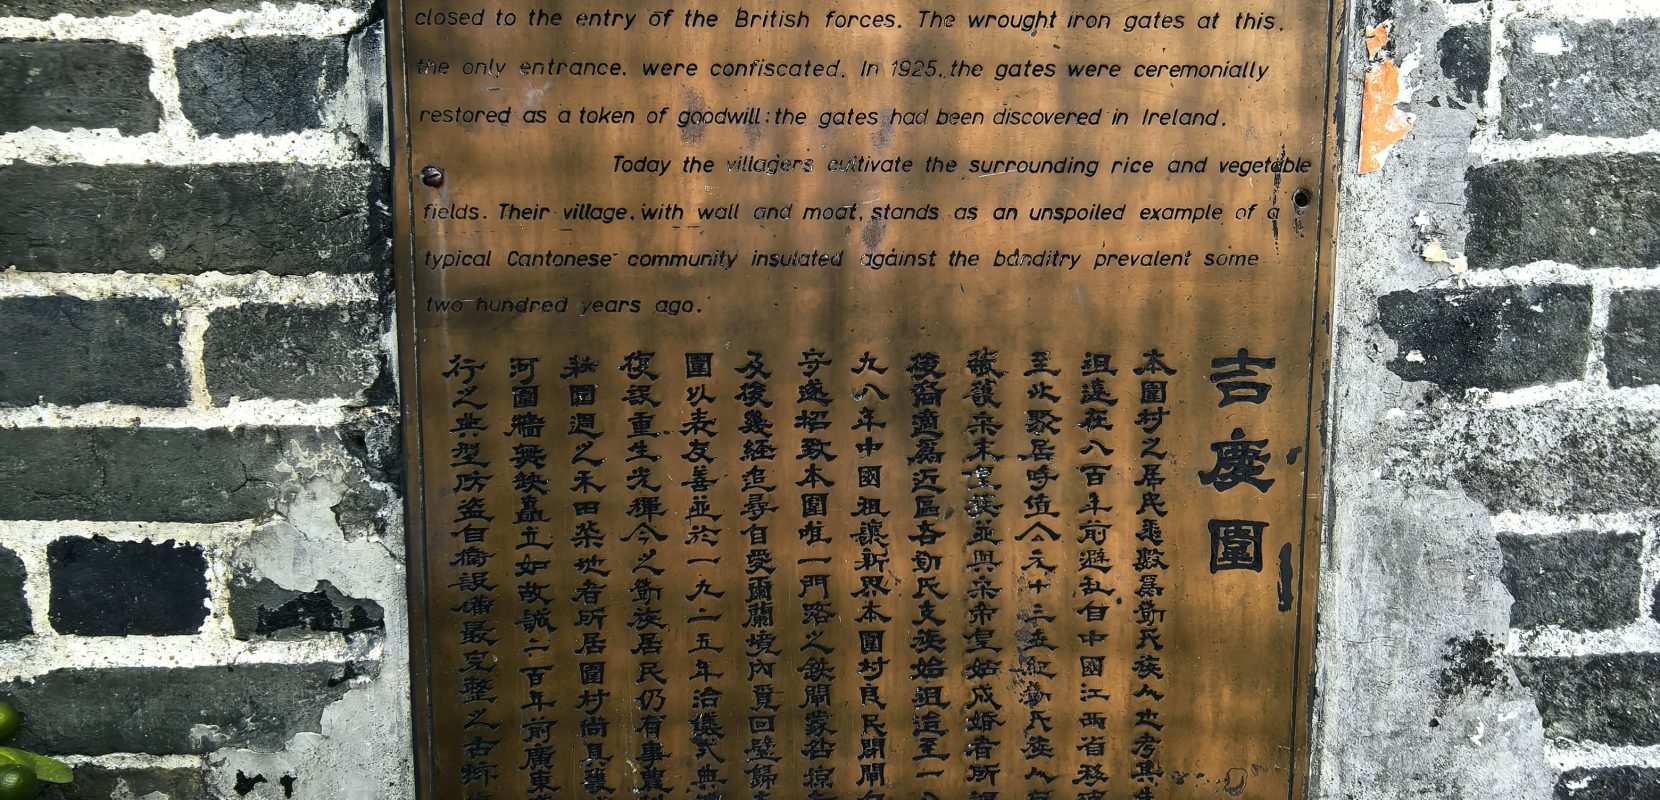 closed to the entry of the British forces. The wrought iron gates at this,
the only entrance, were confiscated. In 1925, the gates were ceremonially
restored as a token of goodwill: the gates had been discovered in Ireland.
Today the villagers cultivate the surrounding rice and vegetable
fields. Their village, with wall and moat, stands as an unspoiled example of a
typical Cantonese community insulated against the banditry prevalent some
two hundred years ago.
吉慶圍
本圍村之居民悉數為鄧氏族人也考其
祖遠在八百年前避乱自中國江西省移
至此聚居時值公元十二世紀鄧氏族人
敬護宋末皇族並與宋帝皇姑成婚者所
後裔適為近區各鄧氏支族始祖迨至一八
九八年中國租讓新界本圍村良民閉閘
守遂招致本圍唯一門路之鉄閘蒙
及後幾經追尋自愛爾蘭境內覓回璧歸
圍以表友善並於一九二五年治儀式典
復設重生光輝今之鄧族居民仍有事農
耕圍週之禾田菜地者所居圍村尚具
河圍牆無缺矗立如故誠二百年前廣東
行之典型防盗自衞設備最完整之古